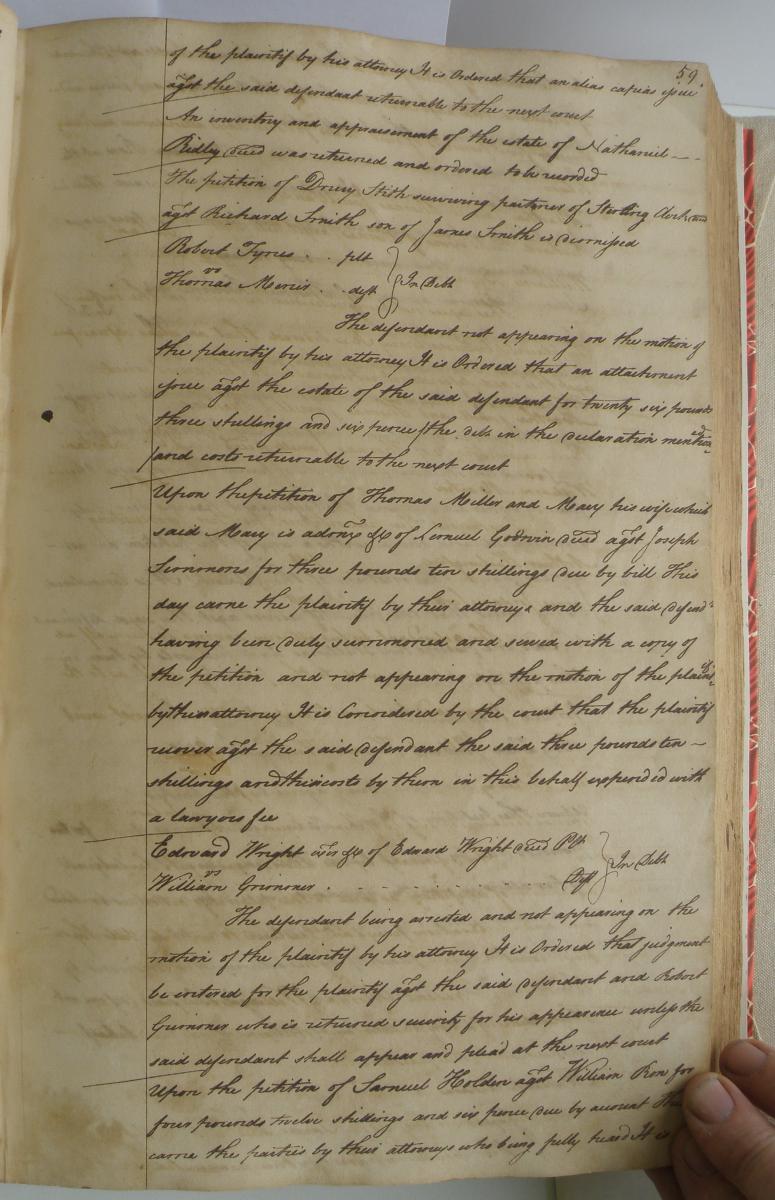 59
of the plaintif by his attorney It is Ordered that an alias capias issue
agst the said defendant returnable to the next court
An inventory and appraisement of the estate of Nathaniel
Ridley deced was returned and ordered to be recorded
The petition of Drury Stith surviving partner of Sterling Clack
agst Richard Smith son of James Smith is dismissed
Robert Tynes . . plt
vs } In Debt
Thomas . deft
The defendant not appearing on the motion of
the plaintif by his attorney It is Ordered that an attachment
issue agst the estate of the said defendant for twenty six pounds
three shillings and six pence /the debt in the declaration mentioned
/and costs returnable to the next court
Upon the petition of Thomas Miller and Mary his wife which
said Mary is admx &c of Lemuel Godwin deced agst Joseph
Simmons for three pounds ten shillings due by bill This
day came the plaintif by their attorney and the said defendt
having been duly summoned and served with a copy of
the petition and not appearing on the motion of the plaintif
by their attorney It is Considered by the court that the plaintif
recover agst the said defendant the said three pounds ten
shillings and their costs by them in this behalf expended with
a lawyers fee
Edward Wright exr &c of Edward Wright deced Plt
vs } In Debt
William Grimmer . . . . . . . Deft
The defendant being arrested and not appearing on the
motion of the plaintif by his attorney It is Ordered that judgment
be entered for the plaintif agst the said defendant and Robert
Grimmer who is returned security for his appearance unless the
said defendant shall appear and plead at the next court
Upon the petition of Samuel Holden agst William for
four pounds twelve shillings and six pence due by account
came the parties by their attorneys who being fully heard It is